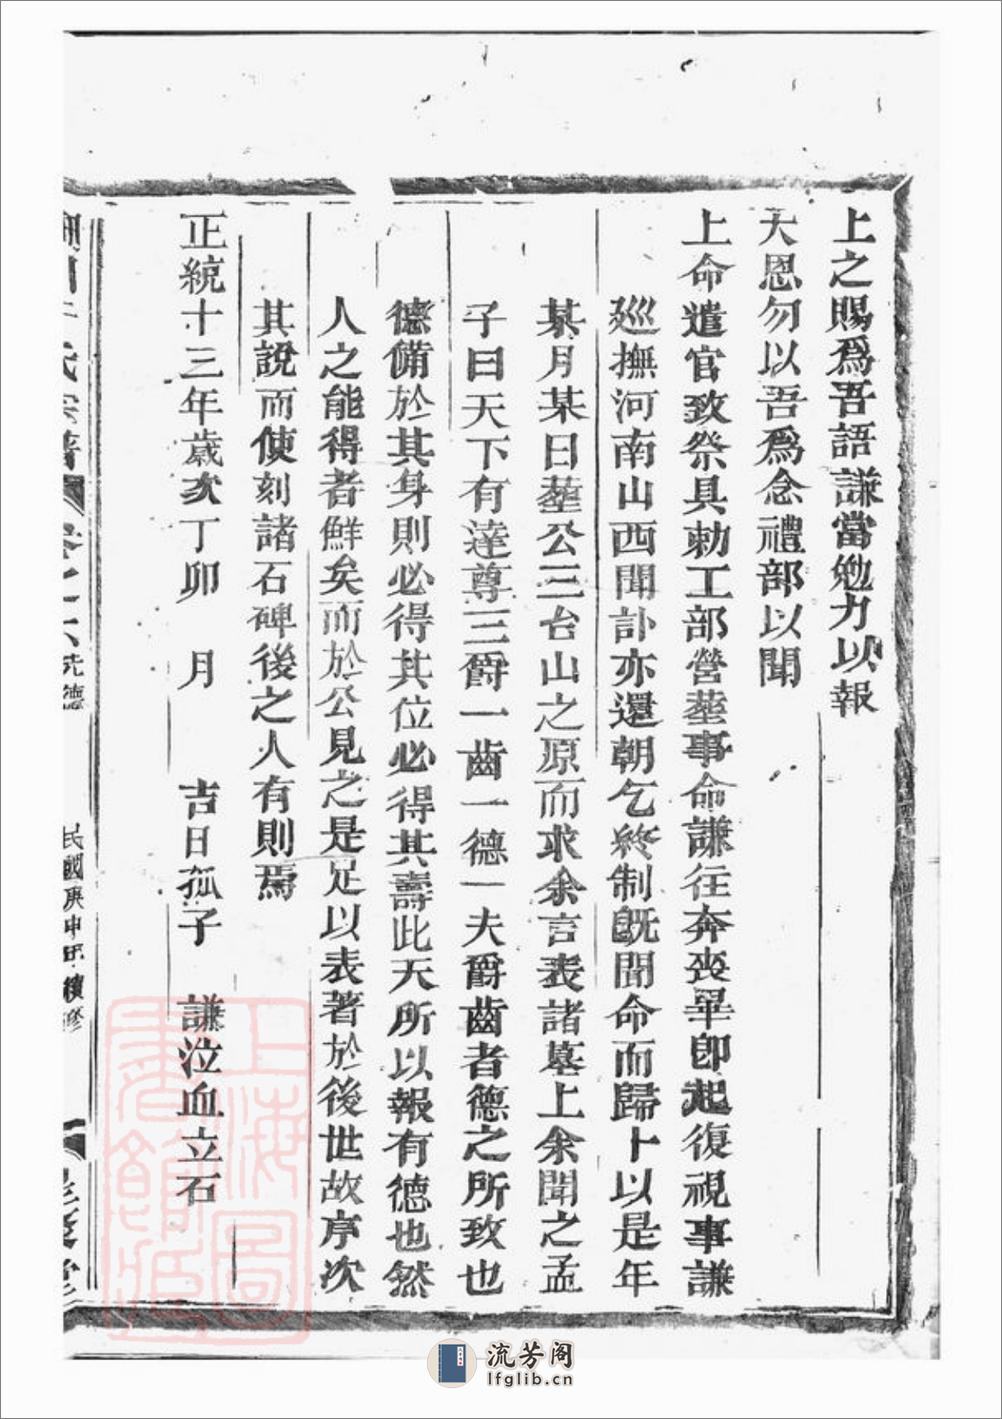 上之賜爲吾語謙當勉力以報
大恩勿以吾爲念禮部以聞
上命遣官致祭具勅工部營塟事命謙往奔喪畢卽起復視事謙
廵撫河南山西聞訃亦還朝乞終制旣聞命而歸卜以是年
某月某日塟公三台山之原而求余言表諸墓上余聞之孟
子曰天下有達尊三爵一齒一德一夫爵齒者德之所致也
德備於其身則必得其位必得其壽此天所以報有德也然
人之能得者鮮矣而於公見之是足以表著於後世故序次
其說而使刻諸石碑後之人有則焉
正統十三年歲次丁卯 月 吉日孤子 謙泣血立石
氏宗譜 卷之六 先德 民國庚申 續修
上海圖書館藏
流芳阁
lfglib.cn